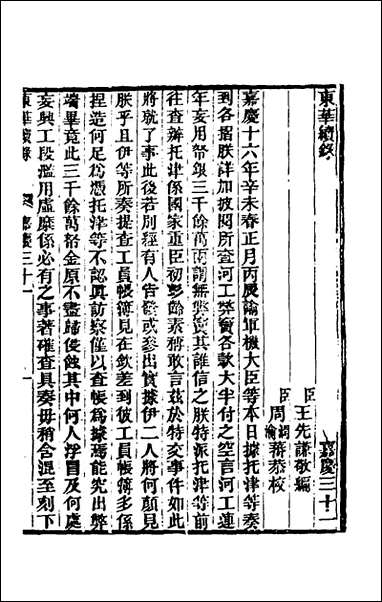 東華續錄
嘉慶三十一
臣王先謙敬編
臣周潤蕃周瀹蕃恭校
嘉慶十六年辛未春正月丙辰諭軍機大臣等本日據托津等奏
到各摺朕詳加披閱所查河工弊竇各款大半付之空言河工連
年妄用帑銀三千餘萬兩謂無弊竇其誰信之朕特派托津等前
往查辦托津係國家重臣初彭齡素稱敢言茲於特交事件如此
將就了事此後若別經有人告發或參出實據伊二人將何顏見
朕乎且伊等所奏提查工員帳簿見在欽差到彼工員帳簿多係
捏造何足為憑托津等不認真訪察僅以查帳為據焉能究出弊
端畢竟此三千餘萬帑金原不盡歸侵蝕其中何人浮冒及何處
妄興工段濫用虛糜係必有之事著確查具奏毋稍含混至刻下
東華續錄
嘉慶三十一
一